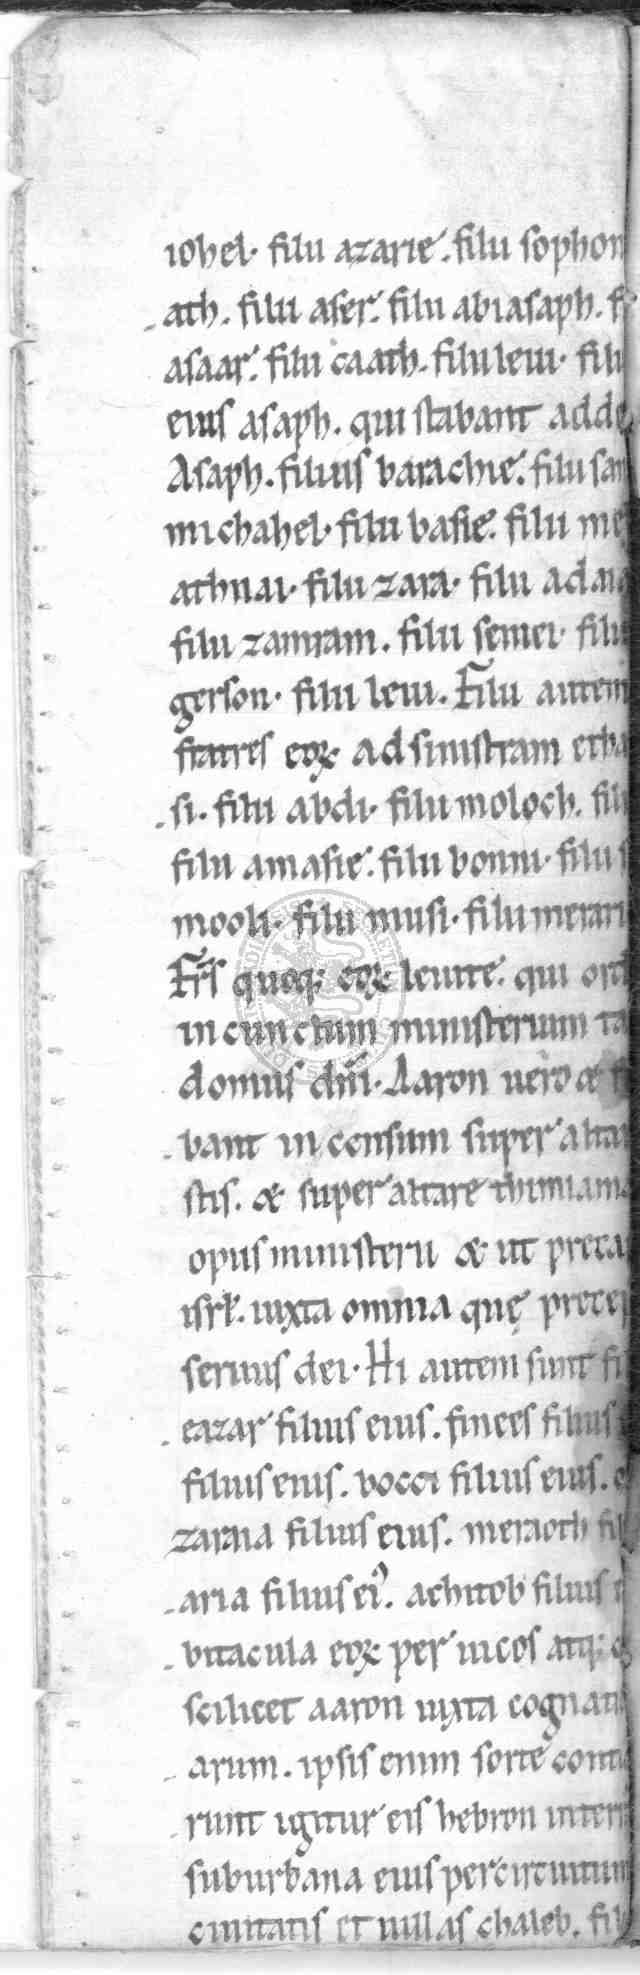 iohel. filii azarię. filii sophon
ath. filii aser. filii abiasaph. f
asaar. filii caath. filii leui. filii
eius asaph. qui stabant ad de
Asaph. filiuis barachię. filii sa
michahel. filii basię. filii me
athnai. filii zara. filii adaia
filii zamram. filii semei. filii
gerson. filii leui. Filii autem
fratres eoꝝ ad sinistram etha
si. filii abdi. filii moloch. fili
filii amasię. filii bonni. filii s
mooli. filii musi. filii merari
Fr̄s quoq; eoꝝ leuite. qui ord
in cunctum ministerium ta
domus dn̄i. Aaron uero & f
bant incensum super altar
stis. & super altare thimiama
opus ministerii & ut preca
isrł. iuxta omnia quę precep
seruus dei. Hi autem sunt fi
eazar filius eius. finees filius
filius eius. bocci filius eius. o
zaraia filius eius. meraioth fil
aria filius ei᾽. achitob filius e
bitacula eoꝝ per uicos atq; c
scilicet aaron iuxta cognati
arum. ipsis enim sorte conti
runt igitur eis hebron in terr
suburbana eius per circuitum
ciuitatis et uillas chaleb. fili